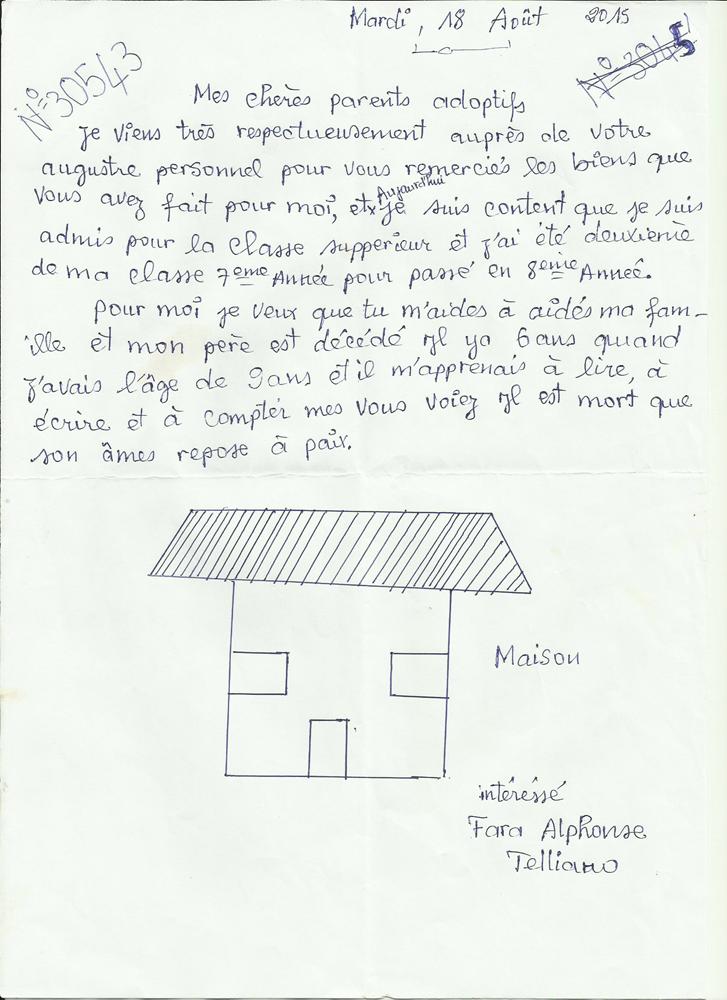 Mardi, 18 Août 2015
N° 30543
N° 3045
Mes chères parents adoptifs
Je viens très respectueusement auprès de votre
augustre personnel pour vous remerciés les biens que
vous avez fait pour moi, et Aujourd'hui je suis content que je suis
admis pour la classe supperieur et j'ai été deuxième
de ma classe 7ème Année pour passé en 8ème Année.
Pour moi je veux que tu m'aides à aidés ma fam-
ille et mon père est décédé Il ya 6 ans quand
j'avais l'âge de 9 ans et il m'apprenais à lire, à
écrire et à compter mes vous voiez Il est mort que
son âmes repose à paix.
Maison
intéréssé
Fara Alphonse
Telliano